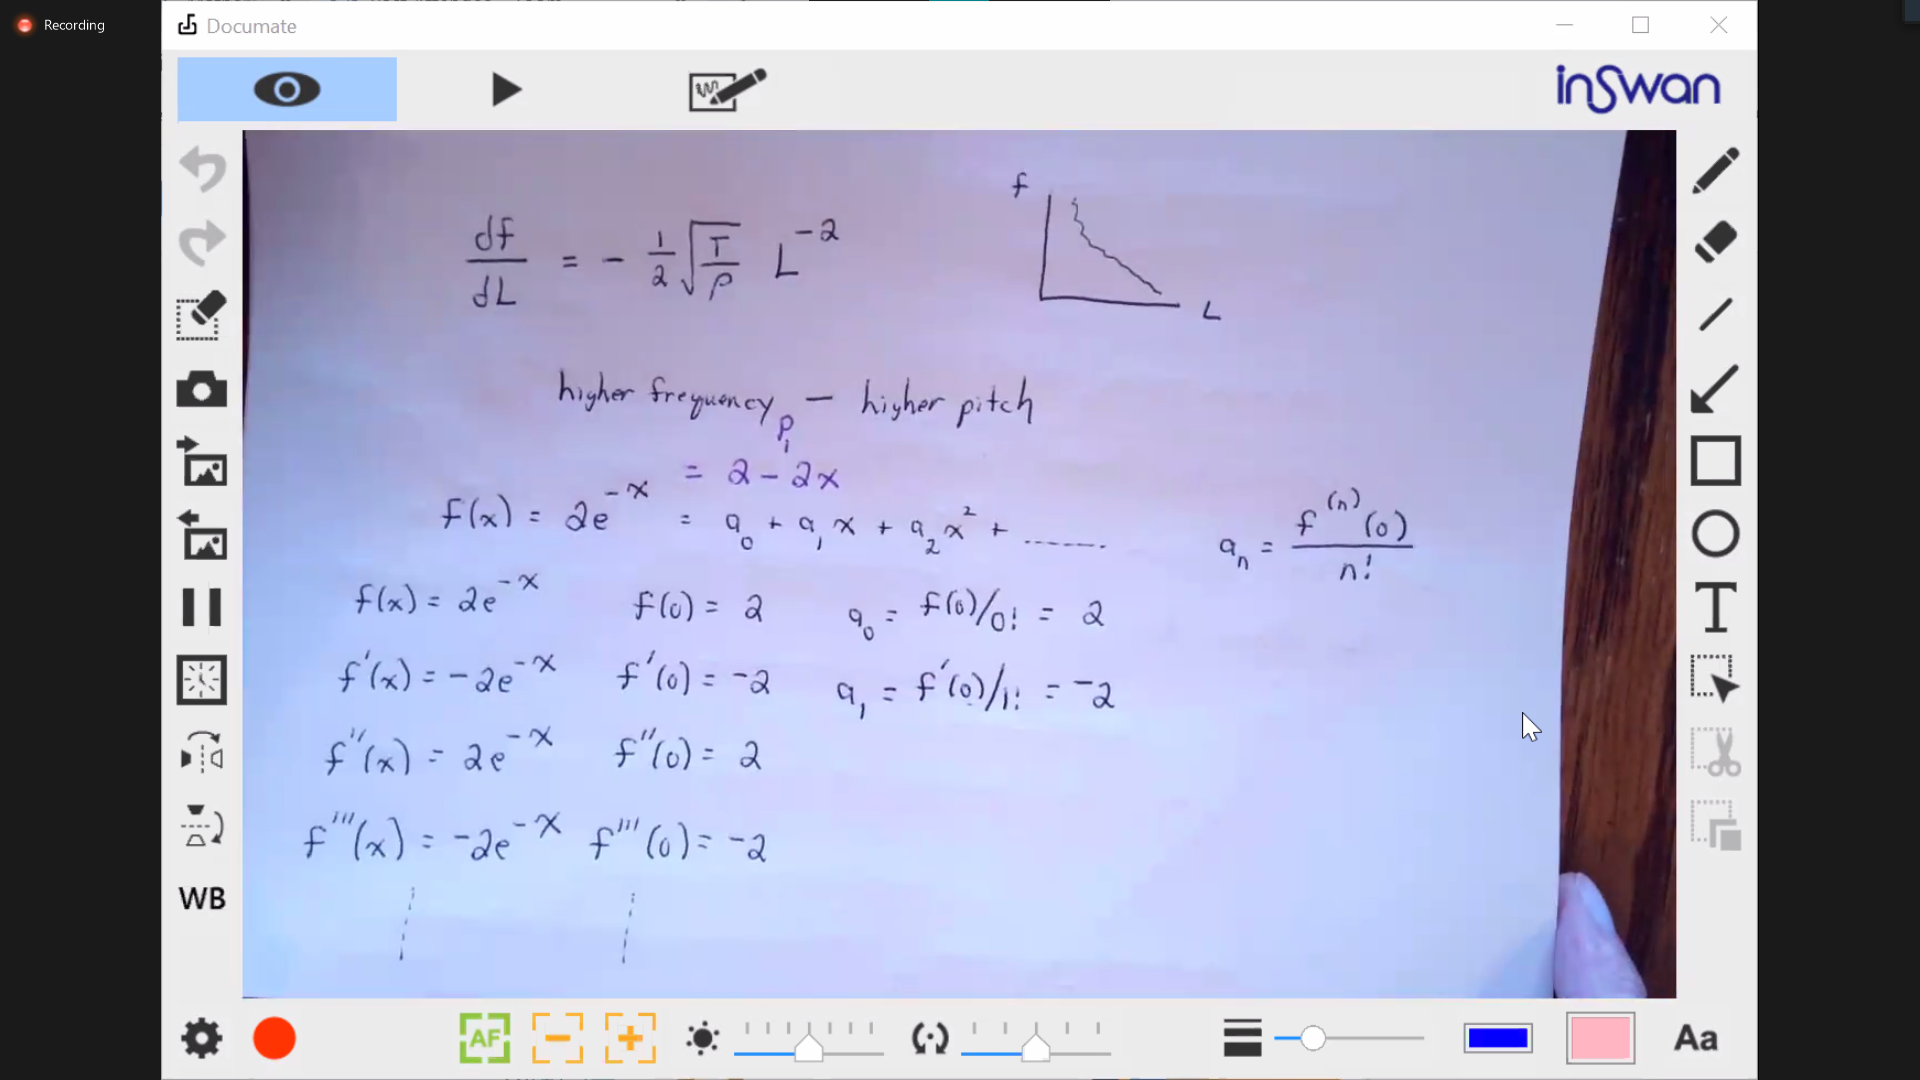 Recording
Documate
inSwan
f
df/dL = - 1/2 √(T/ρ) L^-2
L
higher frequency — higher pitch
P₁
= 2 - 2x
f(x) = 2e^-x = a₀ + a₁x + a₂x² + .......
aₙ = f^(n)(0)/n!
f(x) = 2e^-x f(0) = 2 a₀ = f(0)/0! = 2
f'(x) = -2e^-x f'(0) = -2 a₁ = f'(0)/1! = -2
f''(x) = 2e^-x f''(0) = 2
f'''(x) = -2e^-x f'''(0) = -2
T
WB
AF
Aa